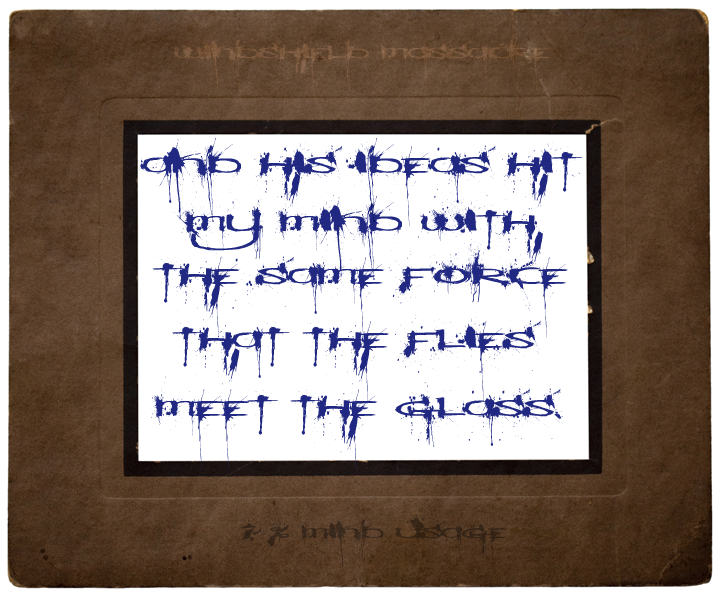 WINDSHIELD MASSACRE
and HIS IDEAS HIT
my mind WITH
THE SAME FORCE
THAT THE FLIES
MEET THE GLASS.
? % mind USAGE